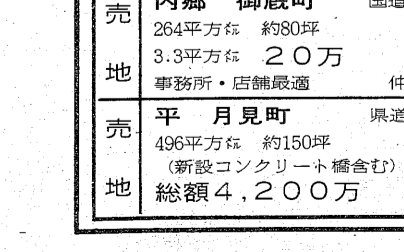 売地
内郷 御厩町 国道
264平方㍍ 約80坪
3.3平方㍍ 20万
事務所・店舗最適 仲
売地
平 月見町 県道
496平方㍍ 約150坪
(新設コンクリート橋含む)
総額4,200万